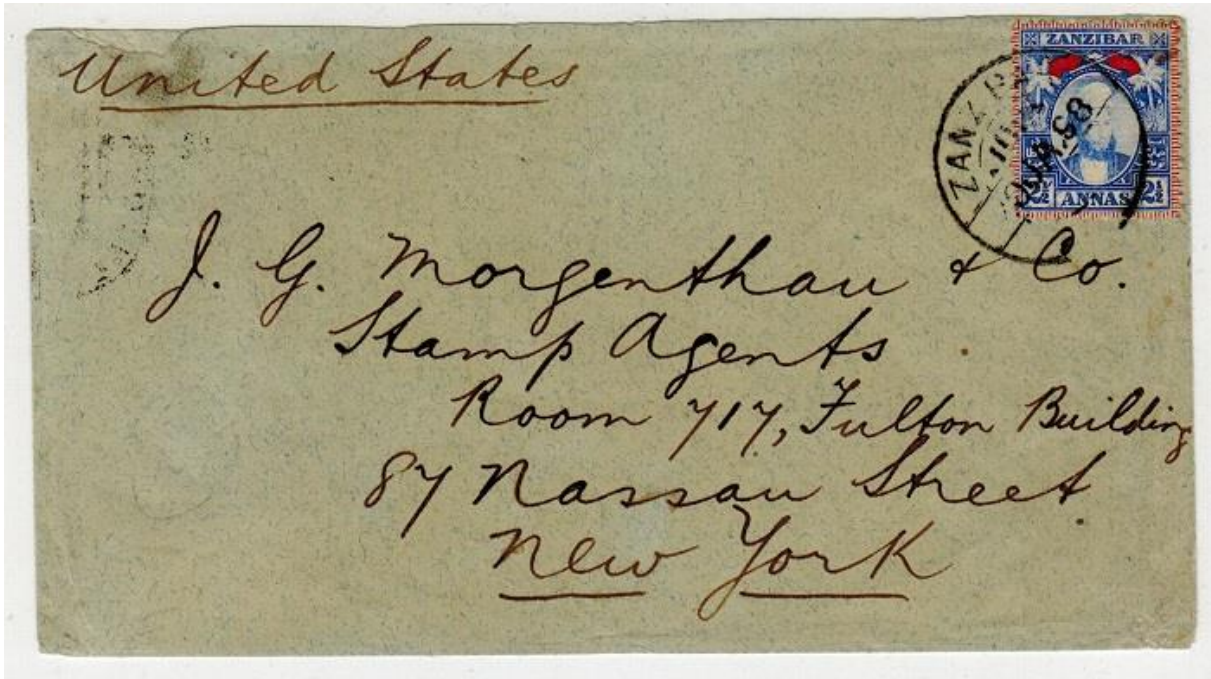 United States
ZANZIBAR
2½ ANNAS 2½
J. G. Morgenthau & Co.
Stamp Agents
Room 717, Fulton Building
87 Nassau Street
New York